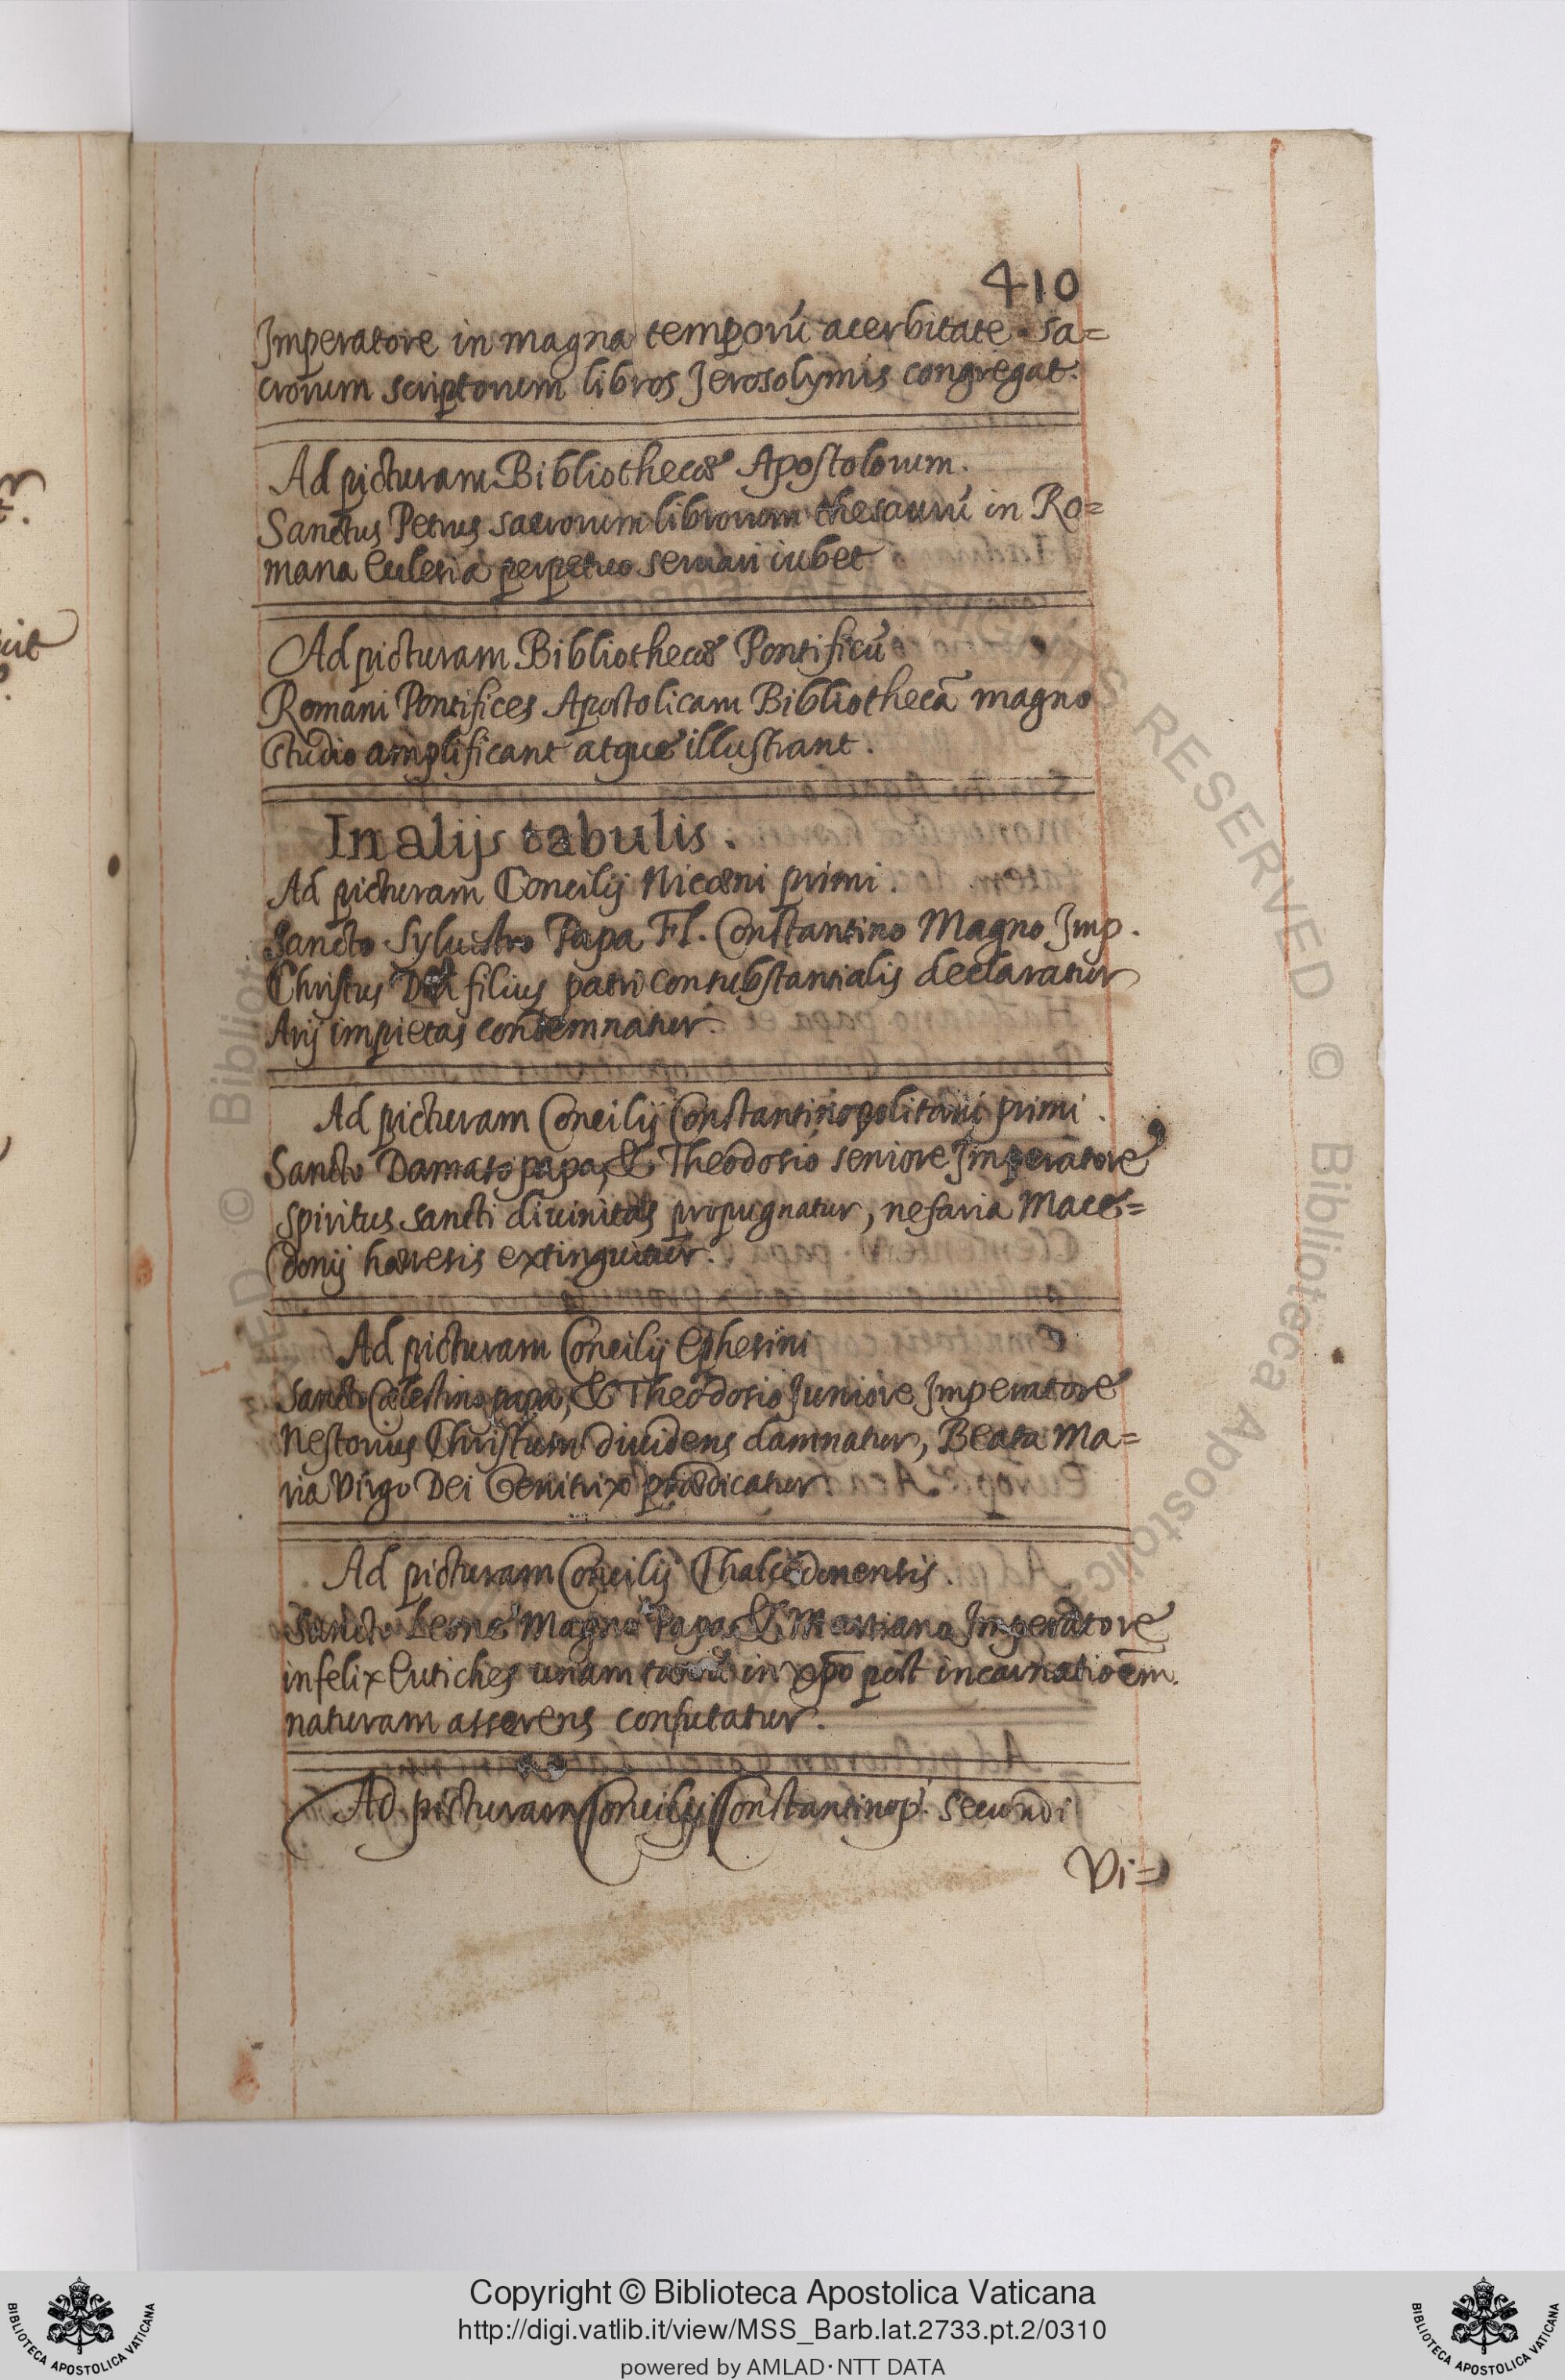 410
Imperatore in magna temporũ acerbitate sa=
crorum scriptorum libros Jerosolymis congregat.
Ad picturam Bibliothecæ Apostolorum.
Sanctus Petrus sacrorum librorum thesaurũ in Ro=
mana Ecclesia perpetuo seruari iubet
Ad picturam Bibliothecæ Pontificũ
Romani Pontifices Apostolicam Bibliothecã magno
studio amplificant atque illustrant.
In alijs tabulis.
Ad picturam Concilij Nicæni primi.
Sancto Syluestro Papa Fl. Constantino Magno Imp.
Christus Dei filius patri consubstantialis declaratur
Arij impietas condemnatur.
Ad picturam Concilij Constantinopolitani primi.
Sancto Damaso papa, & Theodosio seniore Imperatore
spiritus sancti diuinitas propugnatur, nefaria Mace=
donij hæresis extinguitur.
Ad picturam Concilij Ephesini
Sancto Cælestino papa, & Theodosio Juniore Imperatore
Nestorius Christum diuidens damnatur, Beata Ma=
ria Virgo Dei Genitrix prædicatur.
Ad picturam Concilij Chalcedonensis.
Sancto Leone Magno Papa & Martiano Imperatore
infelix Eutiches unam tantũ in xp̃o post incarnatioẽm
naturam asserens confutatur.
Ad picturam Concilij Constantinop. secundi
Vi=
Copyright © Biblioteca Apostolica Vaticana
http://digi.vatlib.it/view/MSS_Barb.lat.2733.pt.2/0310
powered by AMLAD·NTT DATA
BIBLIOTECA APOSTOLICA VATICANA
BIBLIOTECA APOSTOLICA VATICANA